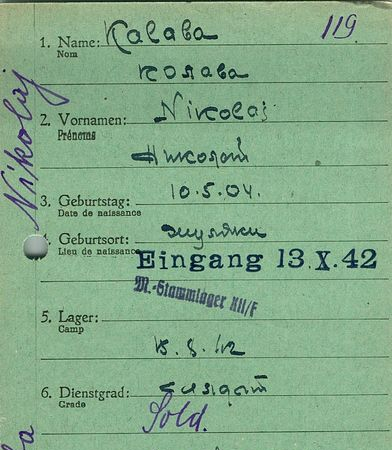 119
1. Name: Kalава
Nom
колава
2. Vornamen: Nikolaj
Prénoms
Николай
Nikolaj
3. Geburtstag: 10.5.04.
Date de naissance
4. Geburtsort:
Lieu de naissance
Eingang 13.X.42
M.-Stammlager XII/F
5. Lager:
Camp
6. Dienstgrad: солдат
Grade
Sold.